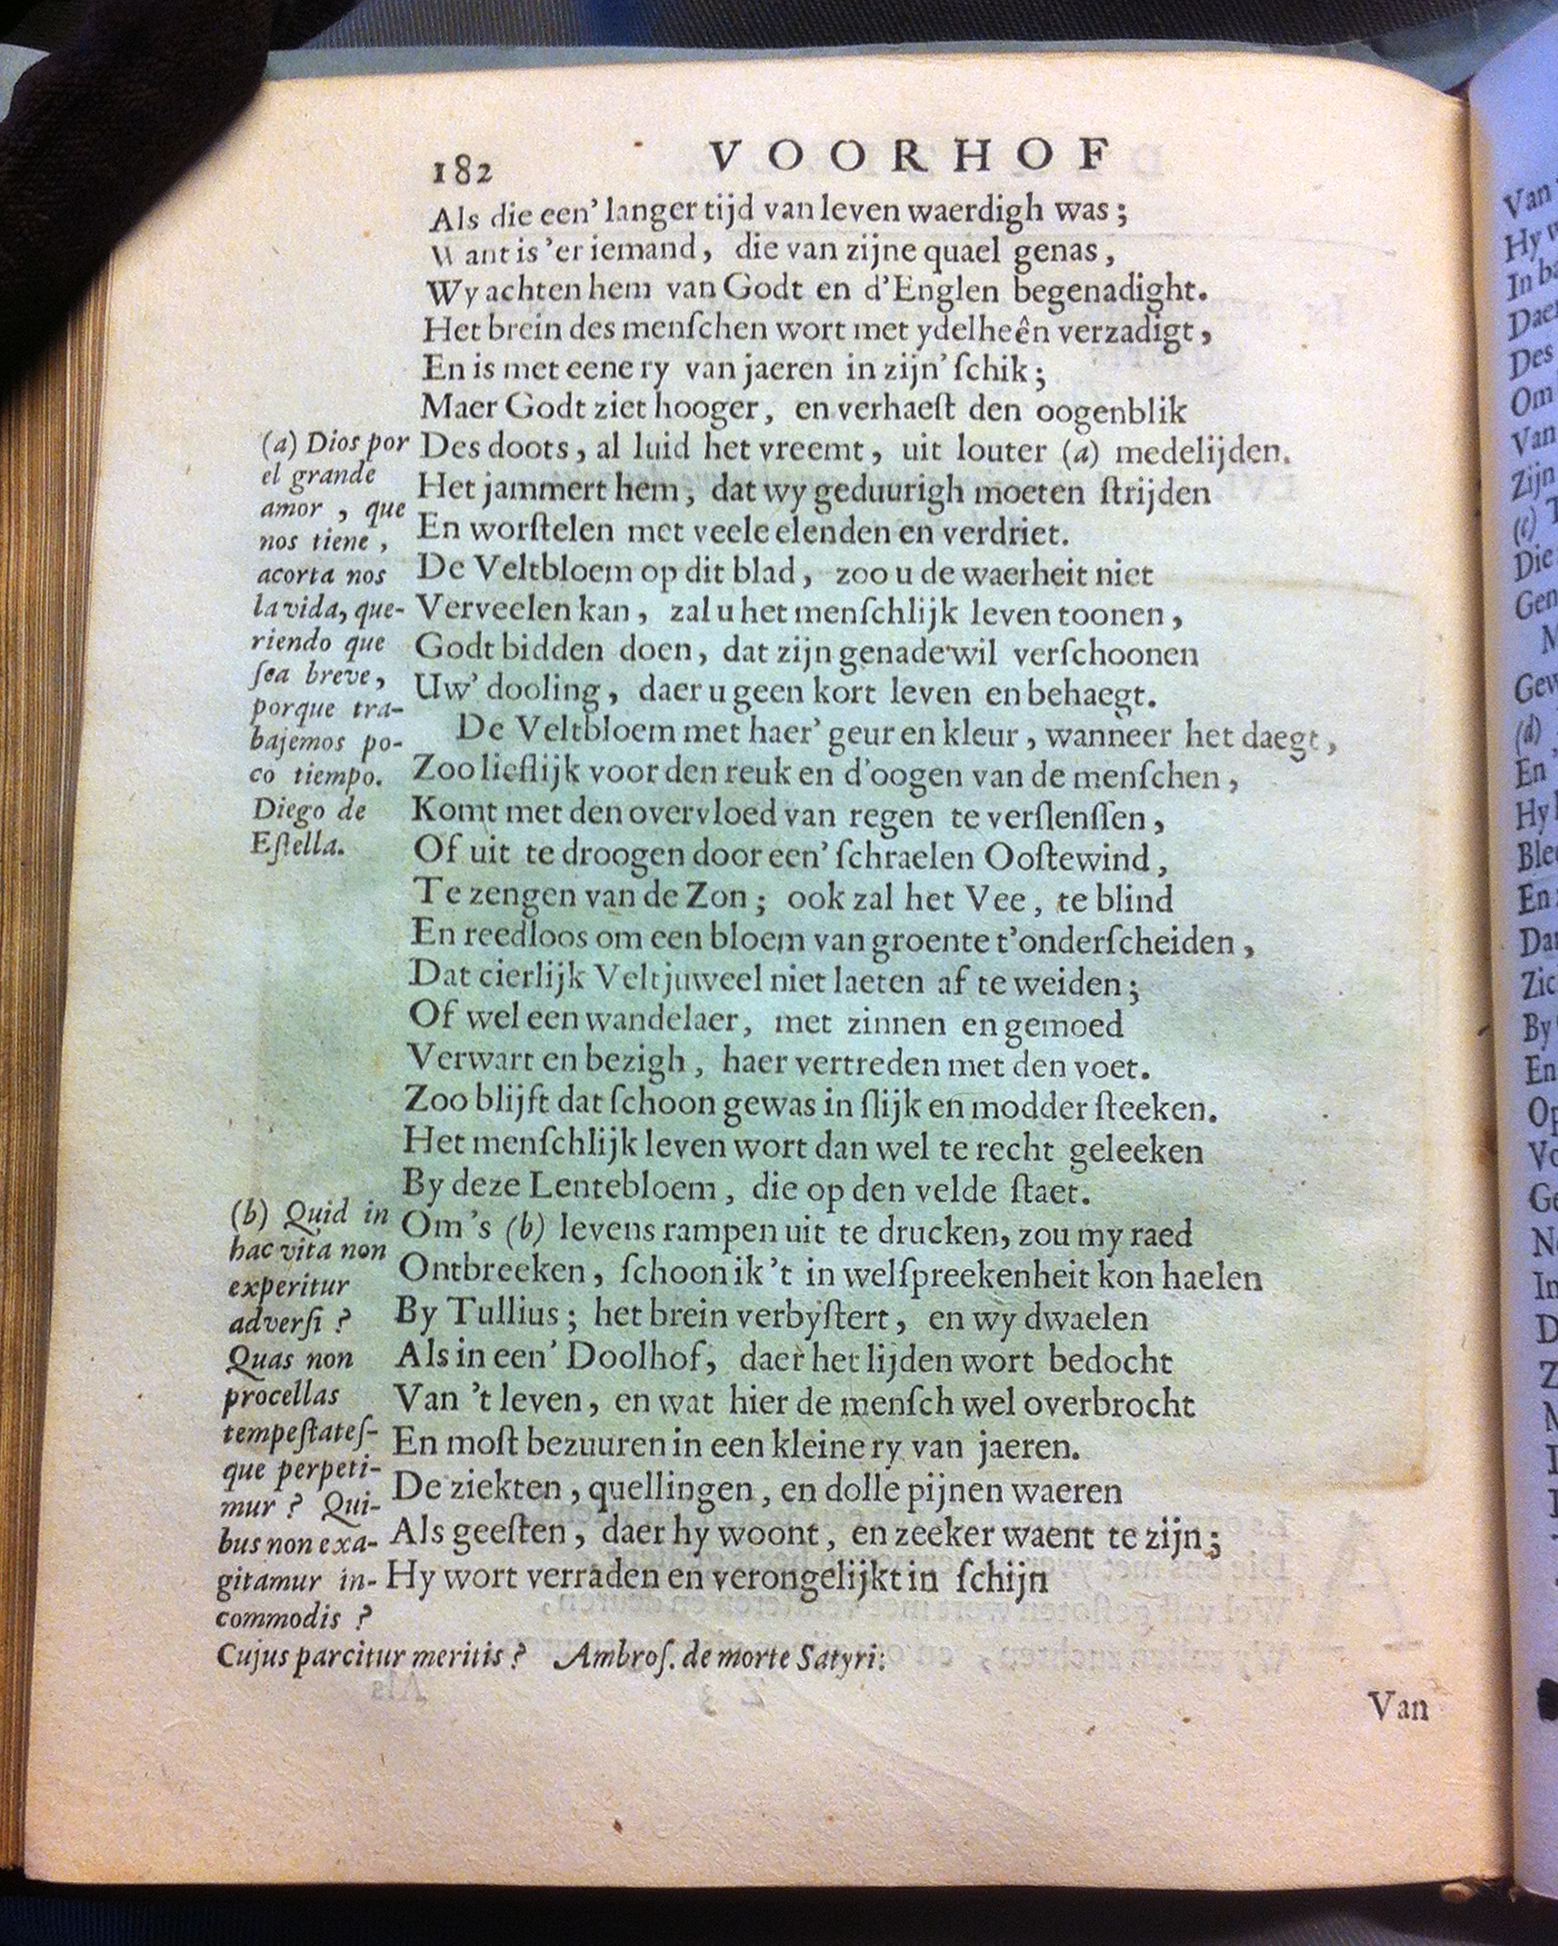 182 VOORHOF
Als die een' langer tijd van leven waerdigh was;
Want is 'er iemand, die van zijne quael genas,
Wy achten hem van Godt en d'Englen begenadight.
Het brein des menſchen wort met ydelheên verzadigt,
En is met eene ry van jaeren in zijn' ſchik;
Maer Godt ziet hooger, en verhaeſt den oogenblik
Des doots, al luid het vreemt, uit louter (a) medelijden.
Het jammert hem, dat wy geduurigh moeten ſtrijden
En worſtelen met veele elenden en verdriet.
De Veltbloem op dit blad, zoo u de waerheit niet
Verveelen kan, zal u het menſchlijk leven toonen,
Godt bidden doen, dat zijn genade wil verſchoonen
Uw' dooling, daer u geen kort leven en behaegt.
De Veltbloem met haer' geur en kleur, wanneer het daegt,
Zoo lieflijk voor den reuk en d'oogen van de menſchen,
Komt met den overvloed van regen te verſlenſſen,
Of uit te droogen door een' ſchraelen Ooſtewind,
Te zengen van de Zon; ook zal het Vee, te blind
En reedloos om een bloem van groente t'onderſcheiden,
Dat cierlijk Veltjuweel niet laeten af te weiden;
Of wel een wandelaer, met zinnen en gemoed
Verwart en bezigh, haer vertreden met den voet.
Zoo blijft dat ſchoon gewas in ſlijk en modder ſteeken.
Het menſchlijk leven wort dan wel te recht geleeken
By deze Lentebloem, die op den velde ſtaet.
Om 's (b) levens rampen uit te drucken, zou my raed
Ontbreeken, ſchoon ik 't in welſpreekenheit kon haelen
By Tullius; het brein verbyſtert, en wy dwaelen
Als in een' Doolhof, daer het lijden wort bedocht
Van 't leven, en wat hier de menſch wel overbrocht
En moſt bezuuren in een kleine ry van jaeren.
De ziekten, quellingen, en dolle pijnen waeren
Als geeſten, daer hy woont, en zeeker waent te zijn;
Hy wort verraden en verongelijkt in ſchijn
(a) Dios por
el grande
amor, que
nos tiene,
acorta nos
la vida, que-
riendo que
ſea breve,
porque tra-
bajemos po-
co tiempo.
Diego de
Eſtella.
(b) Quid in
hac vita non
experitur
adverſi?
Quas non
procellas
tempeſtateſ-
que perpeti-
mur? Qui-
bus non exa-
gitamur in-
commodis?
Cujus parcitur meritis? Ambroſ. de morte Satyri.
Van
Van
Hy
In
Daer
Des
Om
Van
Zijn
(c)
Die
Gen
Gew
(d)
En
Hy
Ble
En
Dat
Zic
By
En
Op
Vo
Ge
In